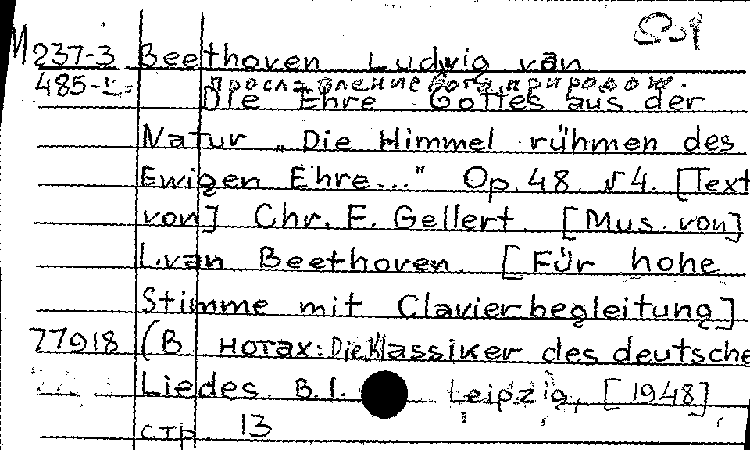 М 237-3 Beethoven Ludwig van
485-
прославление бога природою.
Die Ehre Gottes aus der
Natur „Die Himmel rühmen des
Ewigen Ehre..." Op. 48 №4. [Text
von] Chr. F. Gellert. [Mus. von]
L. van Beethoven. [Für hohe
Stimme mit Clavierbegleitung]
77918 (В нотах: Die Klassiker des deutsche
Liedes. B.I. Leipzig, [1948]
стр. 13